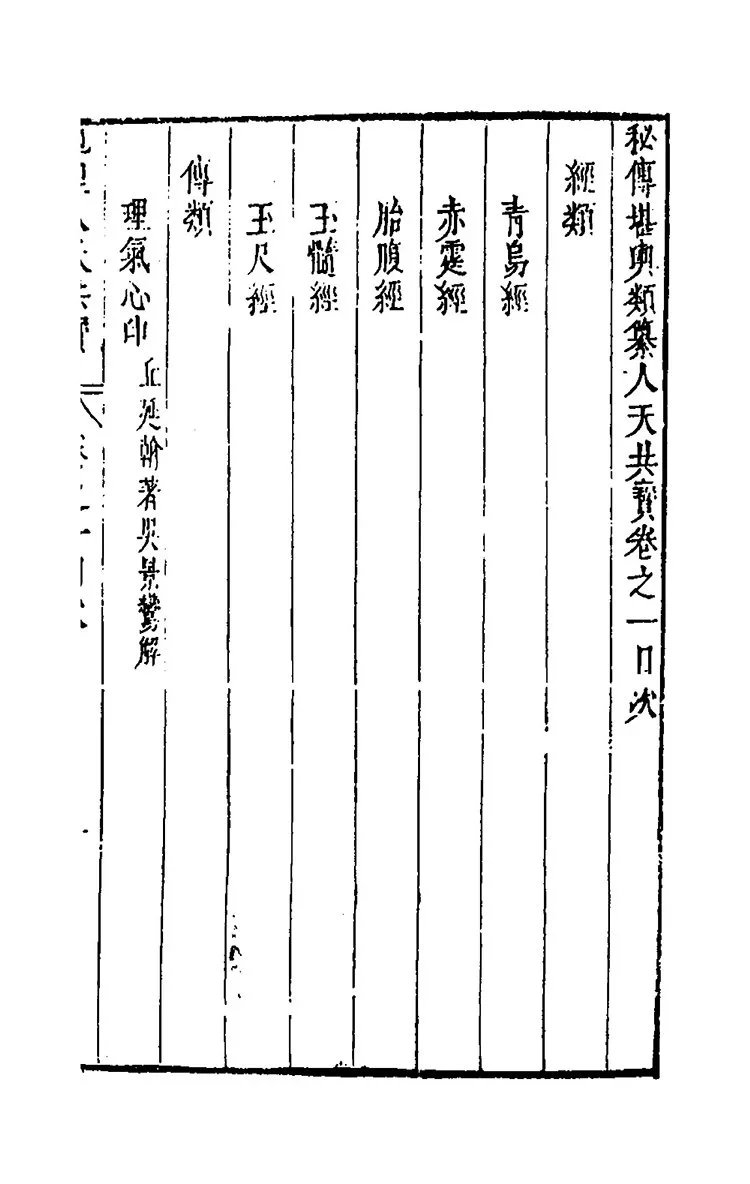 秘傳堪輿類纂人天共寶卷之一目次
經類
青烏經
赤霆經
胎腹經
玉髓經
玉尺經
傳類
理氣心印 丘延翰著吳景鸞解